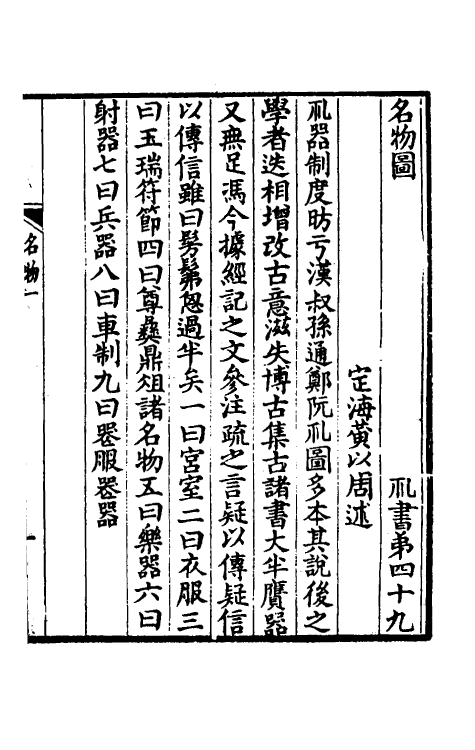 名物圖　禮書弟四十九
定海黃以周述
禮器制度昉亏漢叔孫通鄭阮禮圖多本其說後之
學者迭相增改古意滋失博古集古諸書大半贗器
又無足馮今據經記之文參注疏之言疑以傳疑信
以傳信雖曰髣髴恩過半矣一曰宮室二曰衣服三
曰玉瑞符節四曰尊彝鼎俎諸名物五曰樂器六曰
射器七曰兵器八曰車制九曰喪服喪器
名物一
一